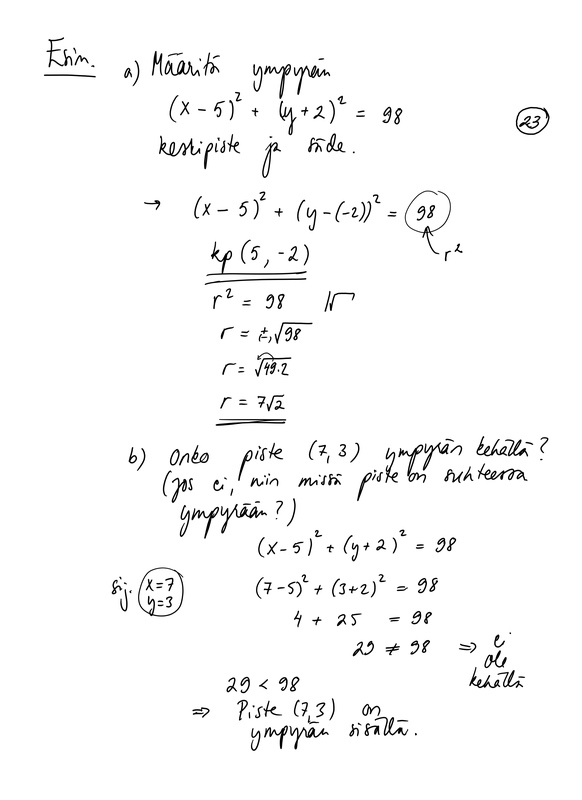 Esim. a) Määritä ympyrän
(x − 5)² + (y + 2)² = 98
23
keskipiste ja säde.
→ (x − 5)² + (y − (−2))² = 98
r²
kp (5, −2)
r² = 98 |√
r = ±√98
r = √49·2
r = 7√2
b) Onko piste (7, 3) ympyrän kehällä?
(Jos ei, niin missä piste on suhteessa
ympyrään?)
(x − 5)² + (y + 2)² = 98
sij. x = 7
y = 3
(7 − 5)² + (3 + 2)² = 98
4 + 25 = 98
29 ≠ 98 ⇒ ei
ole
kehällä
29 < 98
⇒ Piste (7, 3) on
ympyrän sisällä.